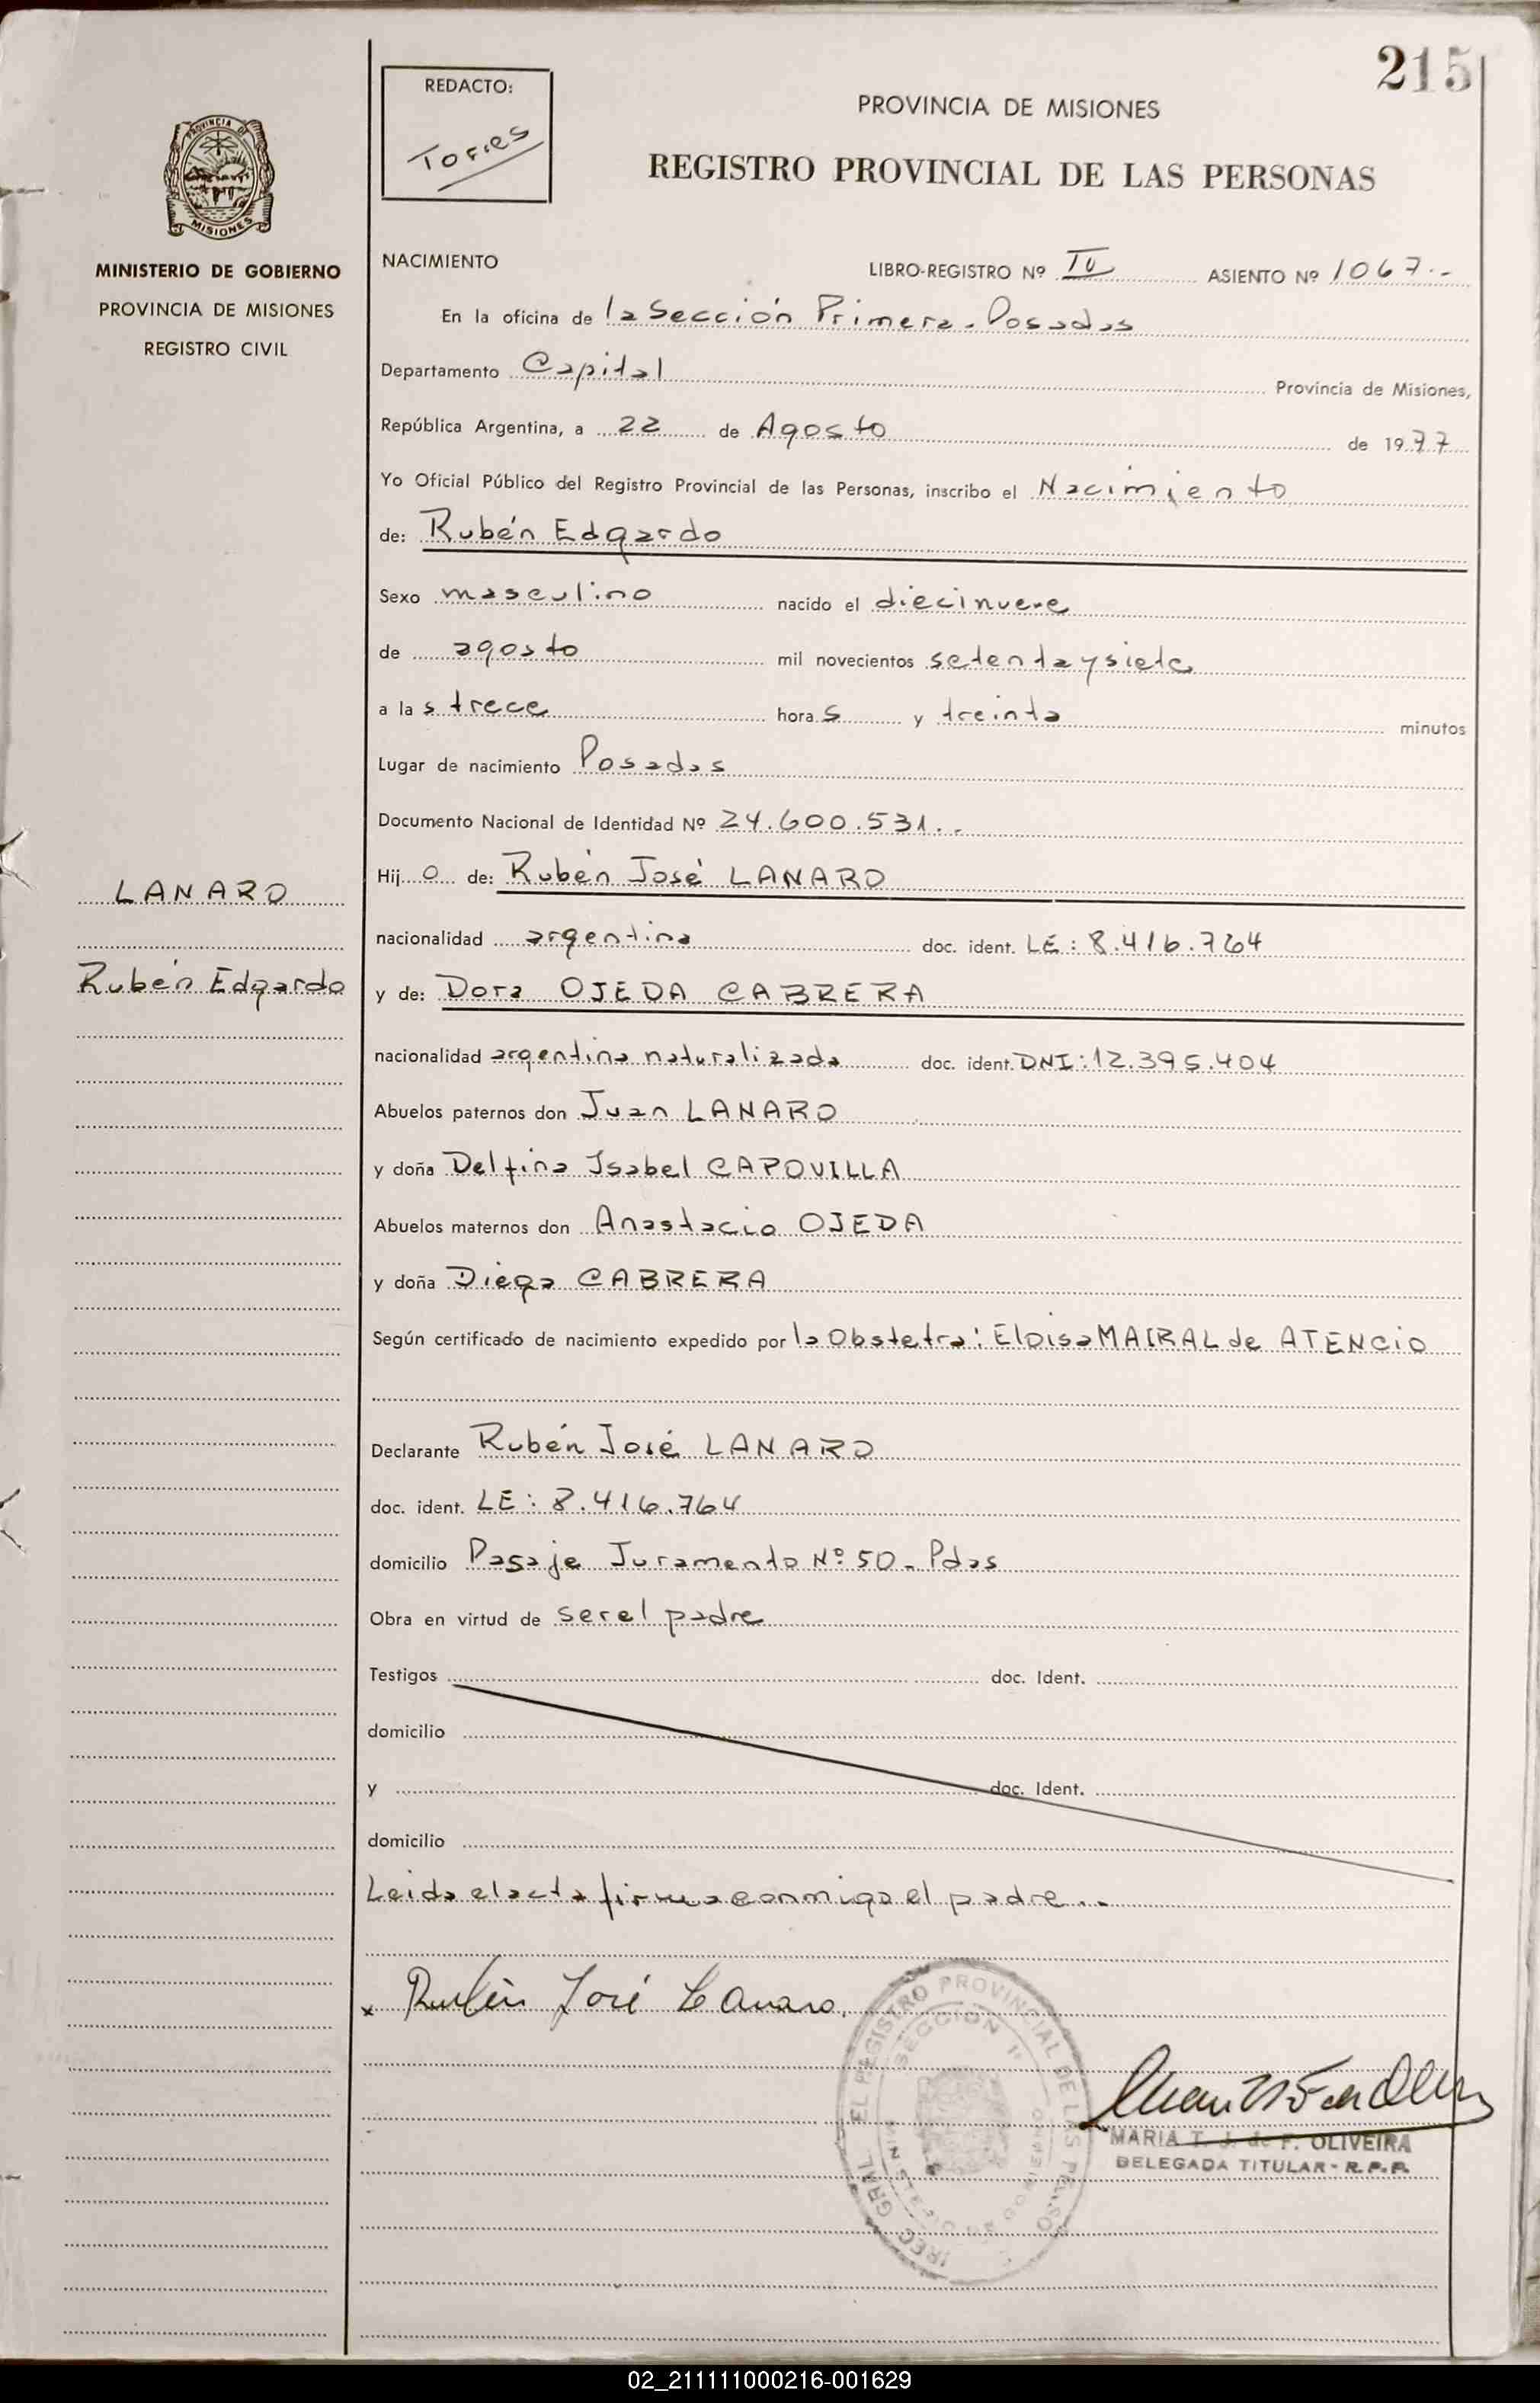 215
REDACTO:
Torres
PROVINCIA DE MISIONES
REGISTRO PROVINCIAL DE LAS PERSONAS
PROVINCIA DE
MISIONES
MINISTERIO DE GOBIERNO
PROVINCIA DE MISIONES
REGISTRO CIVIL
NACIMIENTO LIBRO-REGISTRO Nº IV ASIENTO Nº 1067.-
En la oficina de la Sección Primera. Posadas
Departamento Capital Provincia de Misiones,
República Argentina, a 22 de Agosto de 1977
Yo Oficial Público del Registro Provincial de las Personas, inscribo el Nacimiento
de: Rubén Edgardo
Sexo masculino nacido el diecinueve
de agosto mil novecientos setentaysiete
a las trece horas y treinta minutos
Lugar de nacimiento Posadas
Documento Nacional de Identidad Nº 24.600.531.-
Hijo de: Rubén José LANARO
LANARO
nacionalidad argentina doc. ident. LE: 8.416.764
Rubén Edgardo
y de: Dora OJEDA CABRERA
nacionalidad argentina naturalizada doc. ident. DNI: 12.395.404
Abuelos paternos don Juan LANARO
y doña Delfina Isabel CAPOVILLA
Abuelos maternos don Anastacio OJEDA
y doña Diega CABRERA
Según certificado de nacimiento expedido por la Obstetra: Eloisa MAIRAL de ATENCIO
Declarante Rubén José LANARO
doc. ident. LE: 8.416.764
domicilio Pasaje Juramento Nº 50 - Pdas
Obra en virtud de ser el padre
Testigos doc. Ident.
domicilio
y doc. Ident.
domicilio
Leida el acta firma conmigo el padre.-
x Rubén José Lanaro
EL REGISTRO PROVINCIAL DE LAS PERSO
SECCION 1ª
MARIA T. J. de F. OLIVEIRA
DELEGADA TITULAR - R.P.P.
02_211111000216-001629